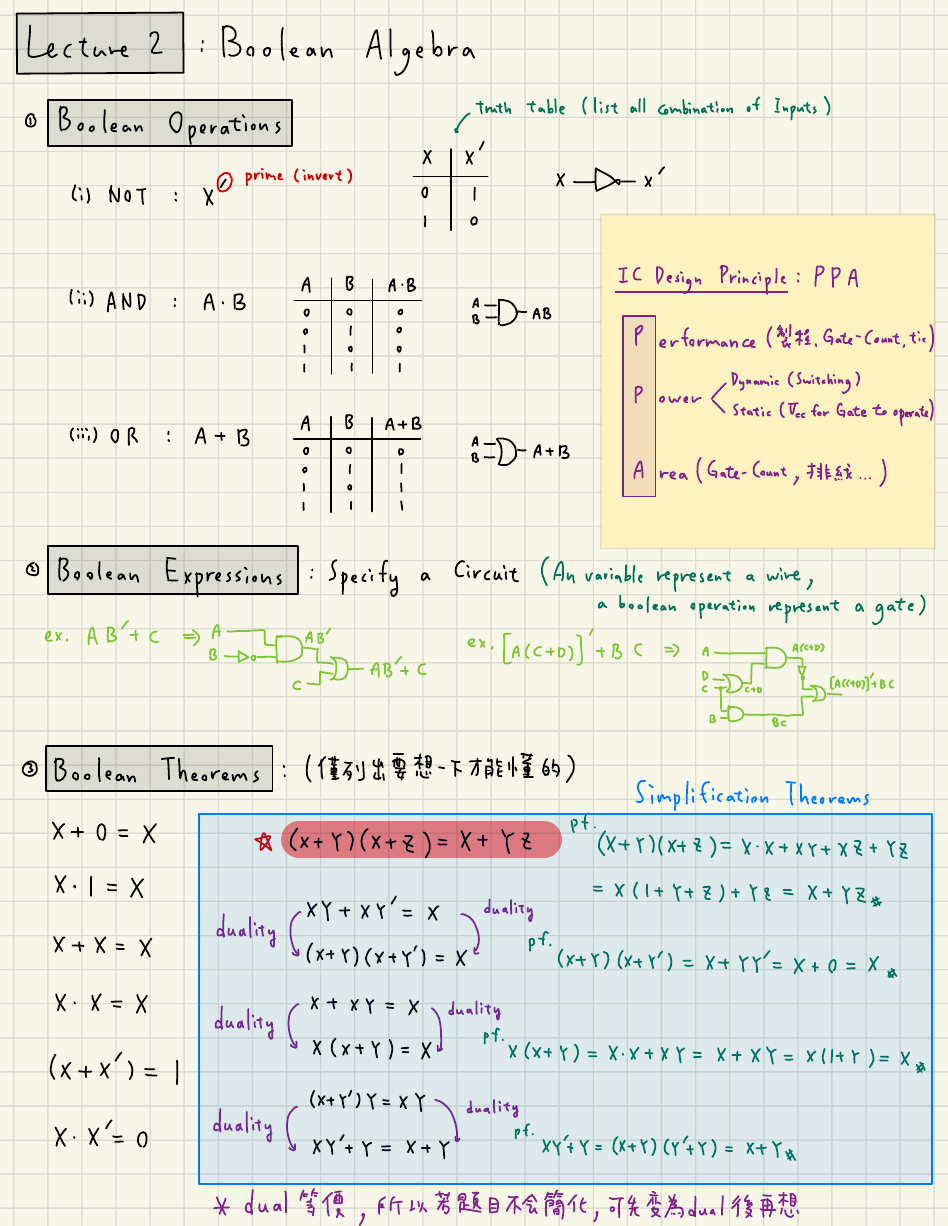 Lecture 2 : Boolean Algebra
① Boolean Operations
truth table (list all combination of Inputs)
(i) NOT : X′ prime (invert)
X X′
0 1
1 0
X X′
(ii) AND : A·B
A B A·B
0 0 0
0 1 0
1 0 0
1 1 1
A
B AB
(iii) OR : A+B
A B A+B
0 0 0
0 1 1
1 0 1
1 1 1
A
B A+B
IC Design Principle : PPA
Performance (製程, Gate-Count, tic)
Power
Dynamic (Switching)
Static (Vcc for Gate to operate)
Area (Gate-Count, 排線...)
② Boolean Expressions : Specify a Circuit (An variable represent a wire,
a boolean operation represent a gate)
ex. AB′+C ⇒
A
B
AB′
C
AB′+C
ex. [A(C+D)]′+BC ⇒
A
A(C+D)
D
C
C+D
[A(C+D)]′+BC
B
BC
③ Boolean Theorems : (僅列出要想一下才能懂的)
Simplification Theorems
X+0=X
X·1=X
X+X=X
X·X=X
(X+X′)=1
X·X′=0
☆ (X+Y)(X+Z)=X+YZ
pf. (X+Y)(X+Z)=X·X+XY+XZ+YZ
=X(1+Y+Z)+YZ=X+YZ※
duality XY+XY′=X duality
(X+Y)(X+Y′)=X
pf. (X+Y)(X+Y′)=X+YY′=X+0=X※
duality X+XY=X duality
X(X+Y)=X
pf. X(X+Y)=X·X+XY=X+XY=X(1+Y)=X※
duality (X+Y′)Y=XY duality
XY′+Y=X+Y
pf. XY′+Y=(X+Y)(Y′+Y)=X+Y※
* dual 等價, 所以若題目不會簡化, 可先變為dual後再想